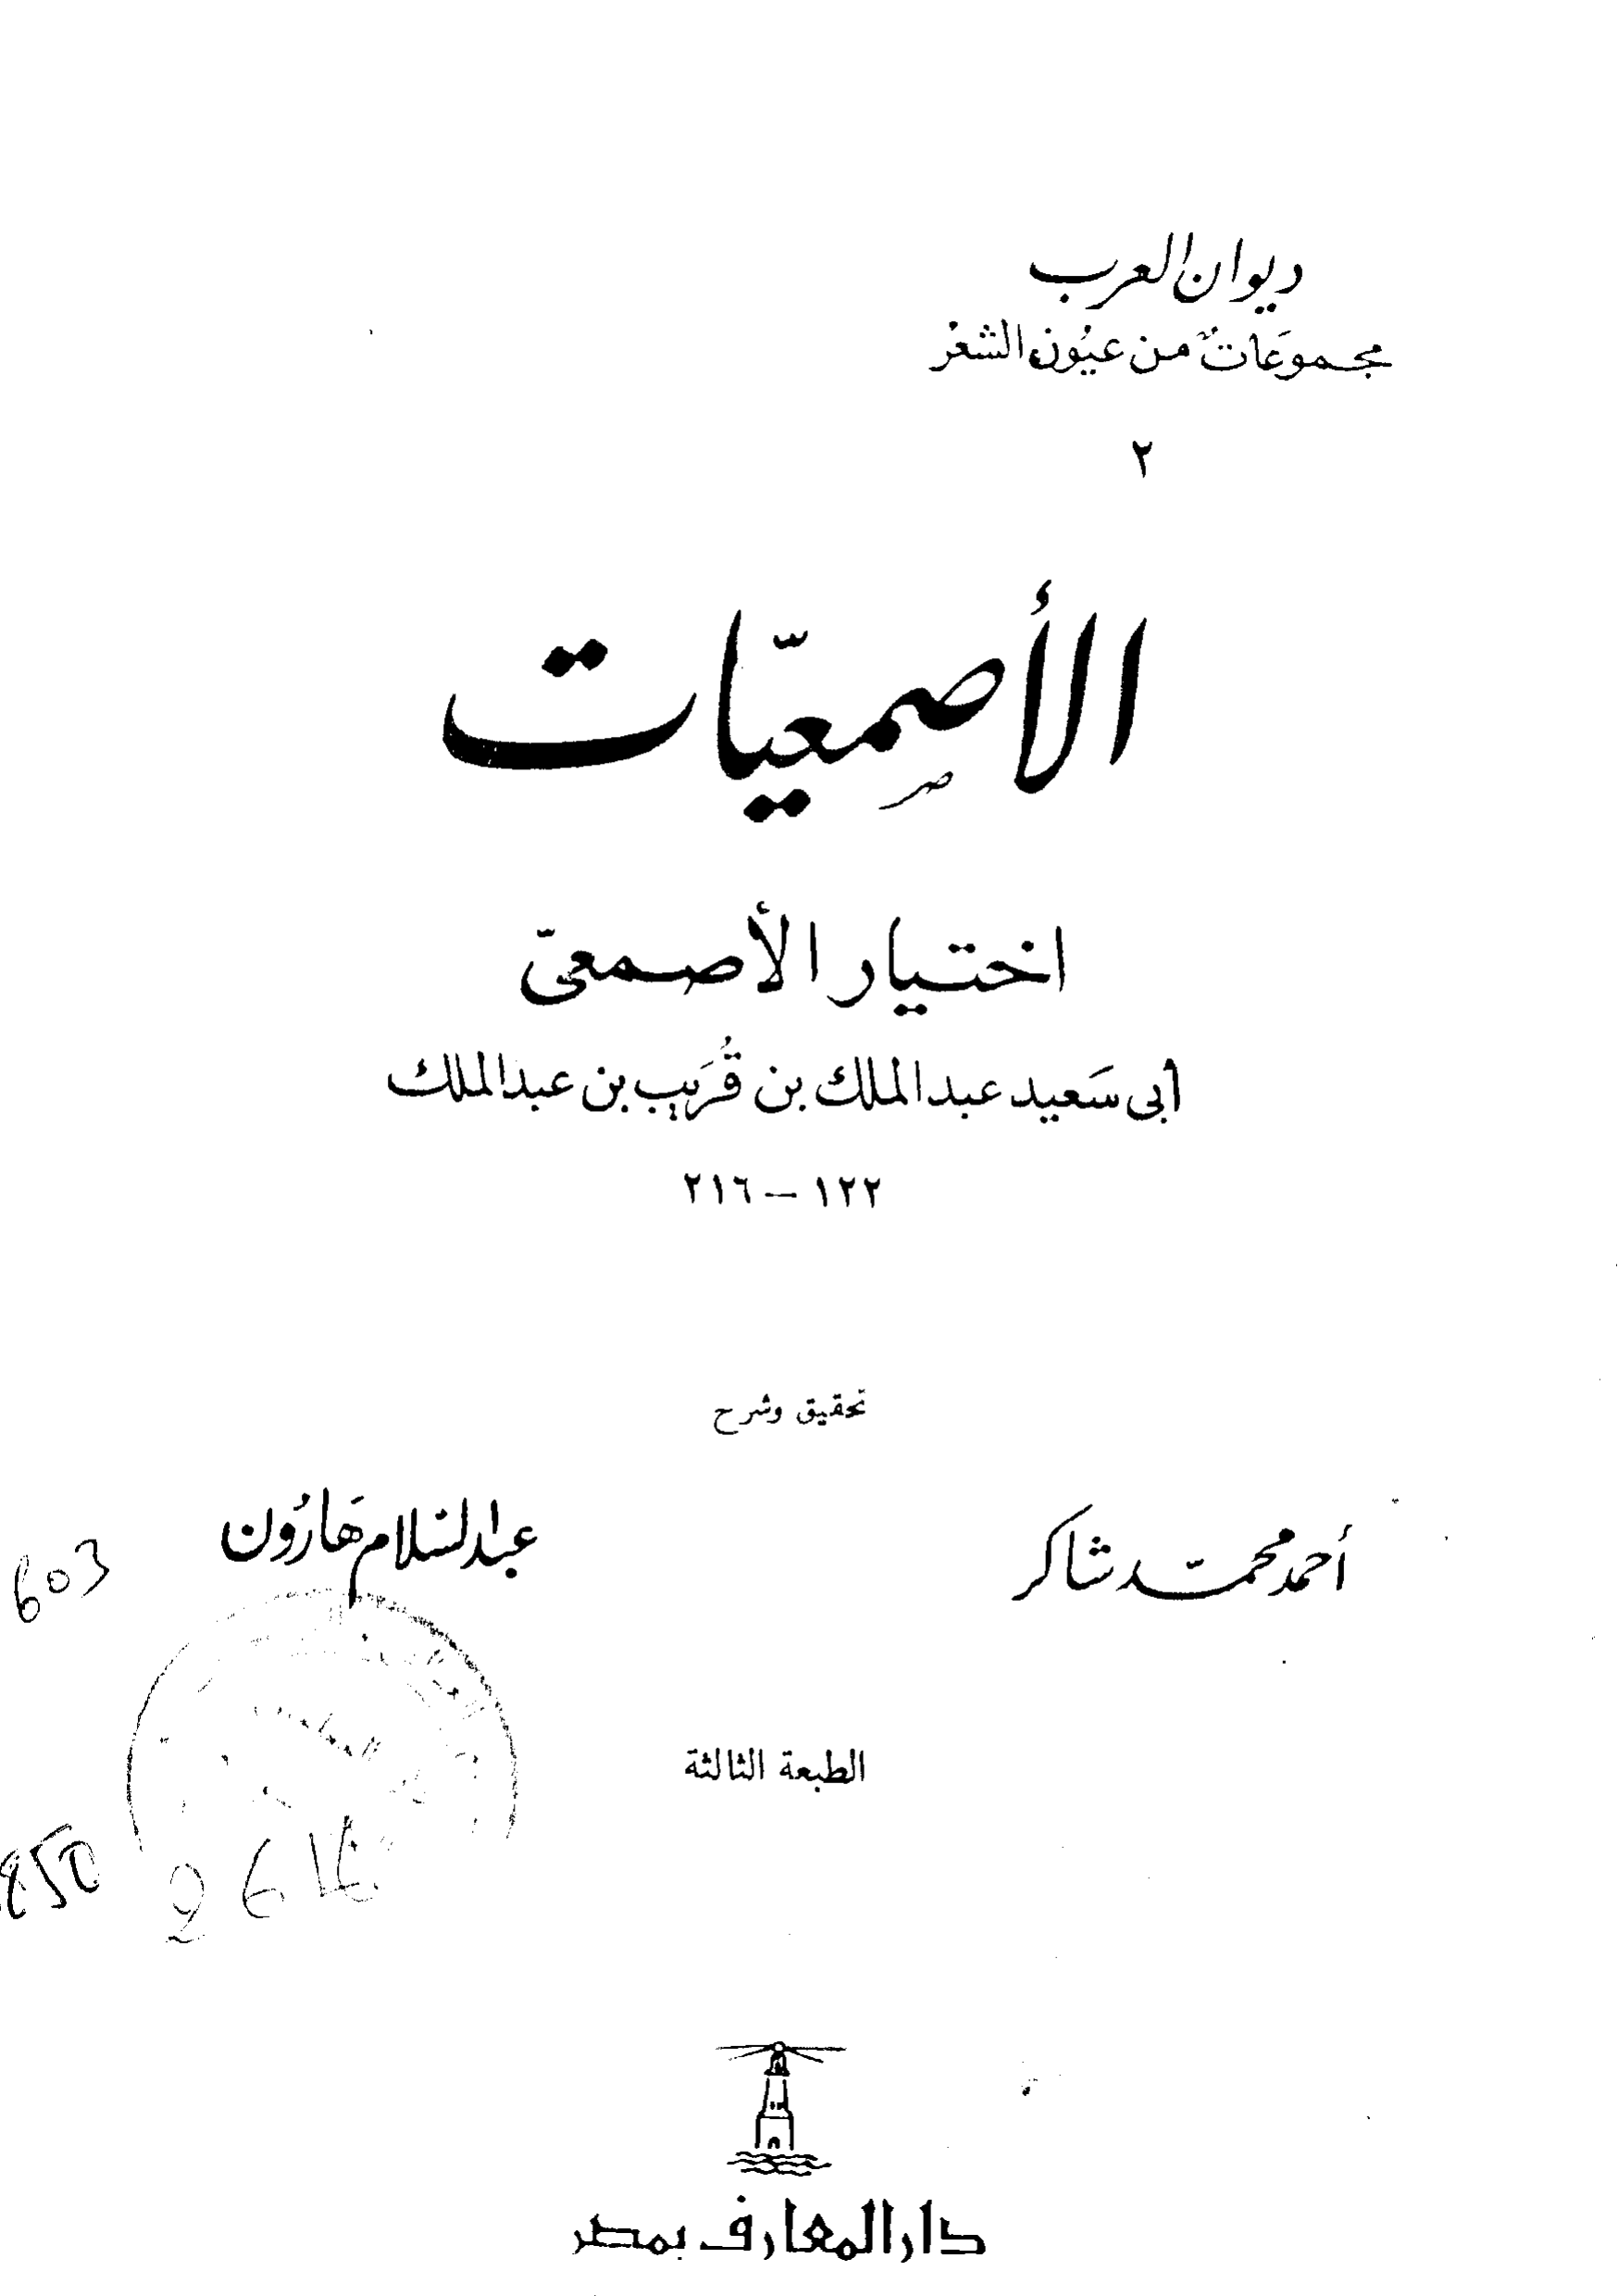 ديوان العرب
مجموعَاتٌ من عيُون الشعْر
٢
الأصمعيّات
اختيار الأصمعىّ
أبى سَعيد عبد الملك بن قُرَيب بن عبد الملك
١٢٢ – ٢١٦
تحقيق وشرح
أحمد محمّد شاكر
عبد السّلام هَارُون
603
الطبعة الثالثة
850
دار المعارف بمصر